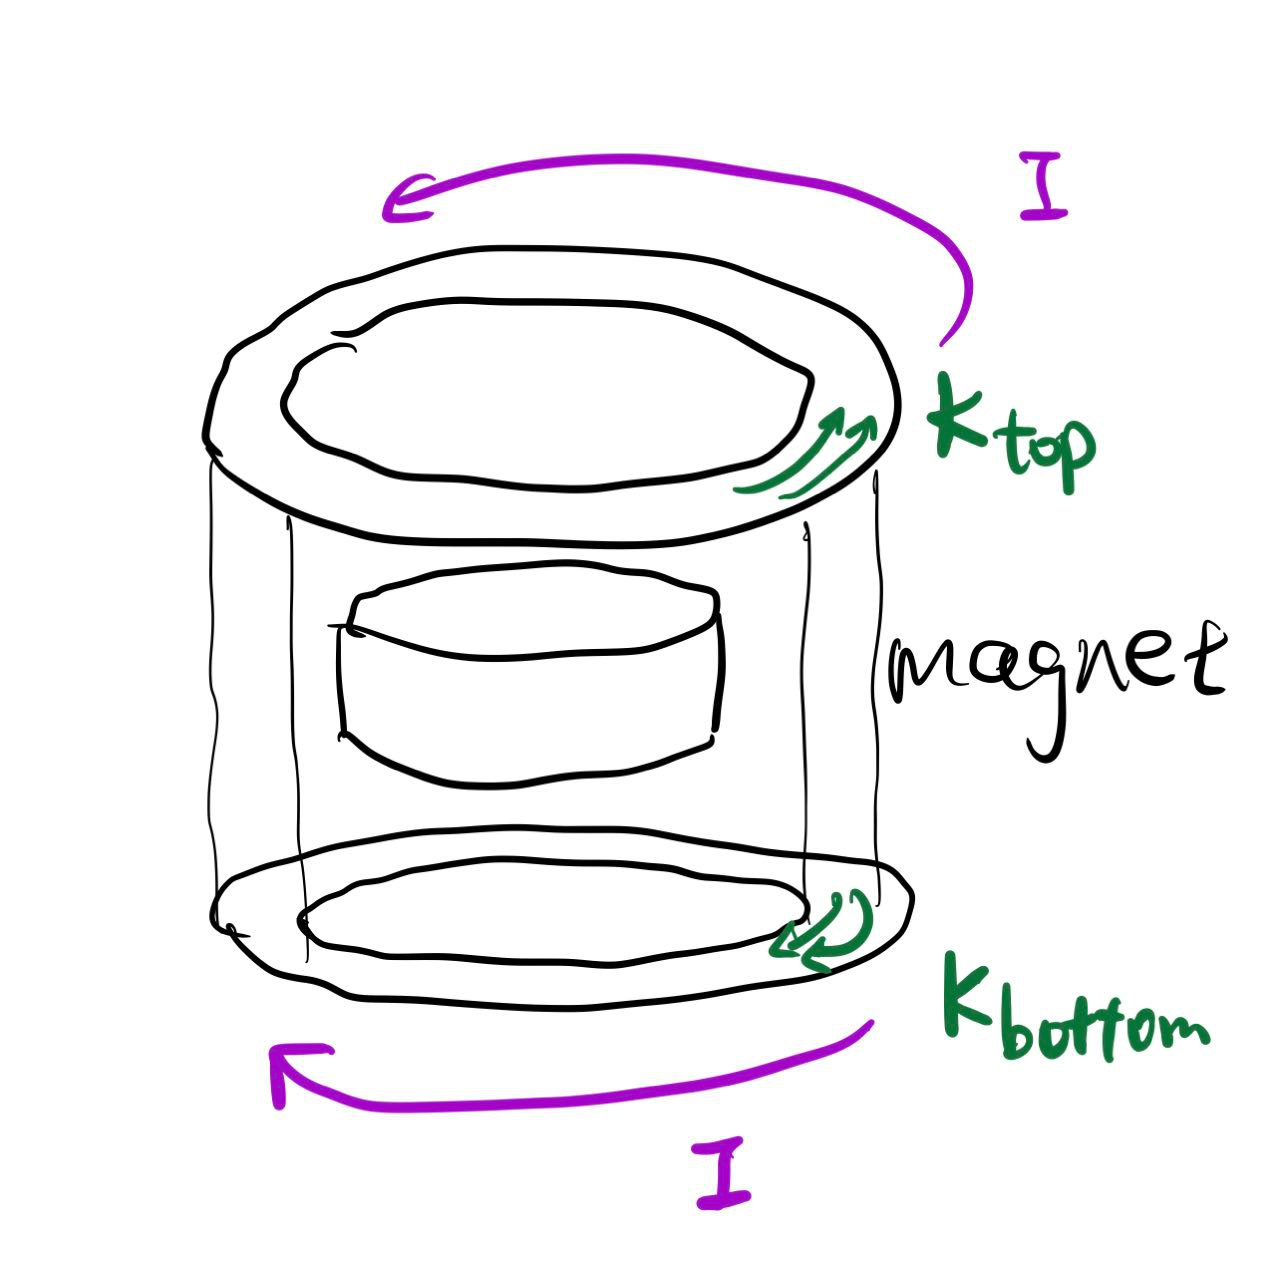 I
K top
magnet
K bottom
I